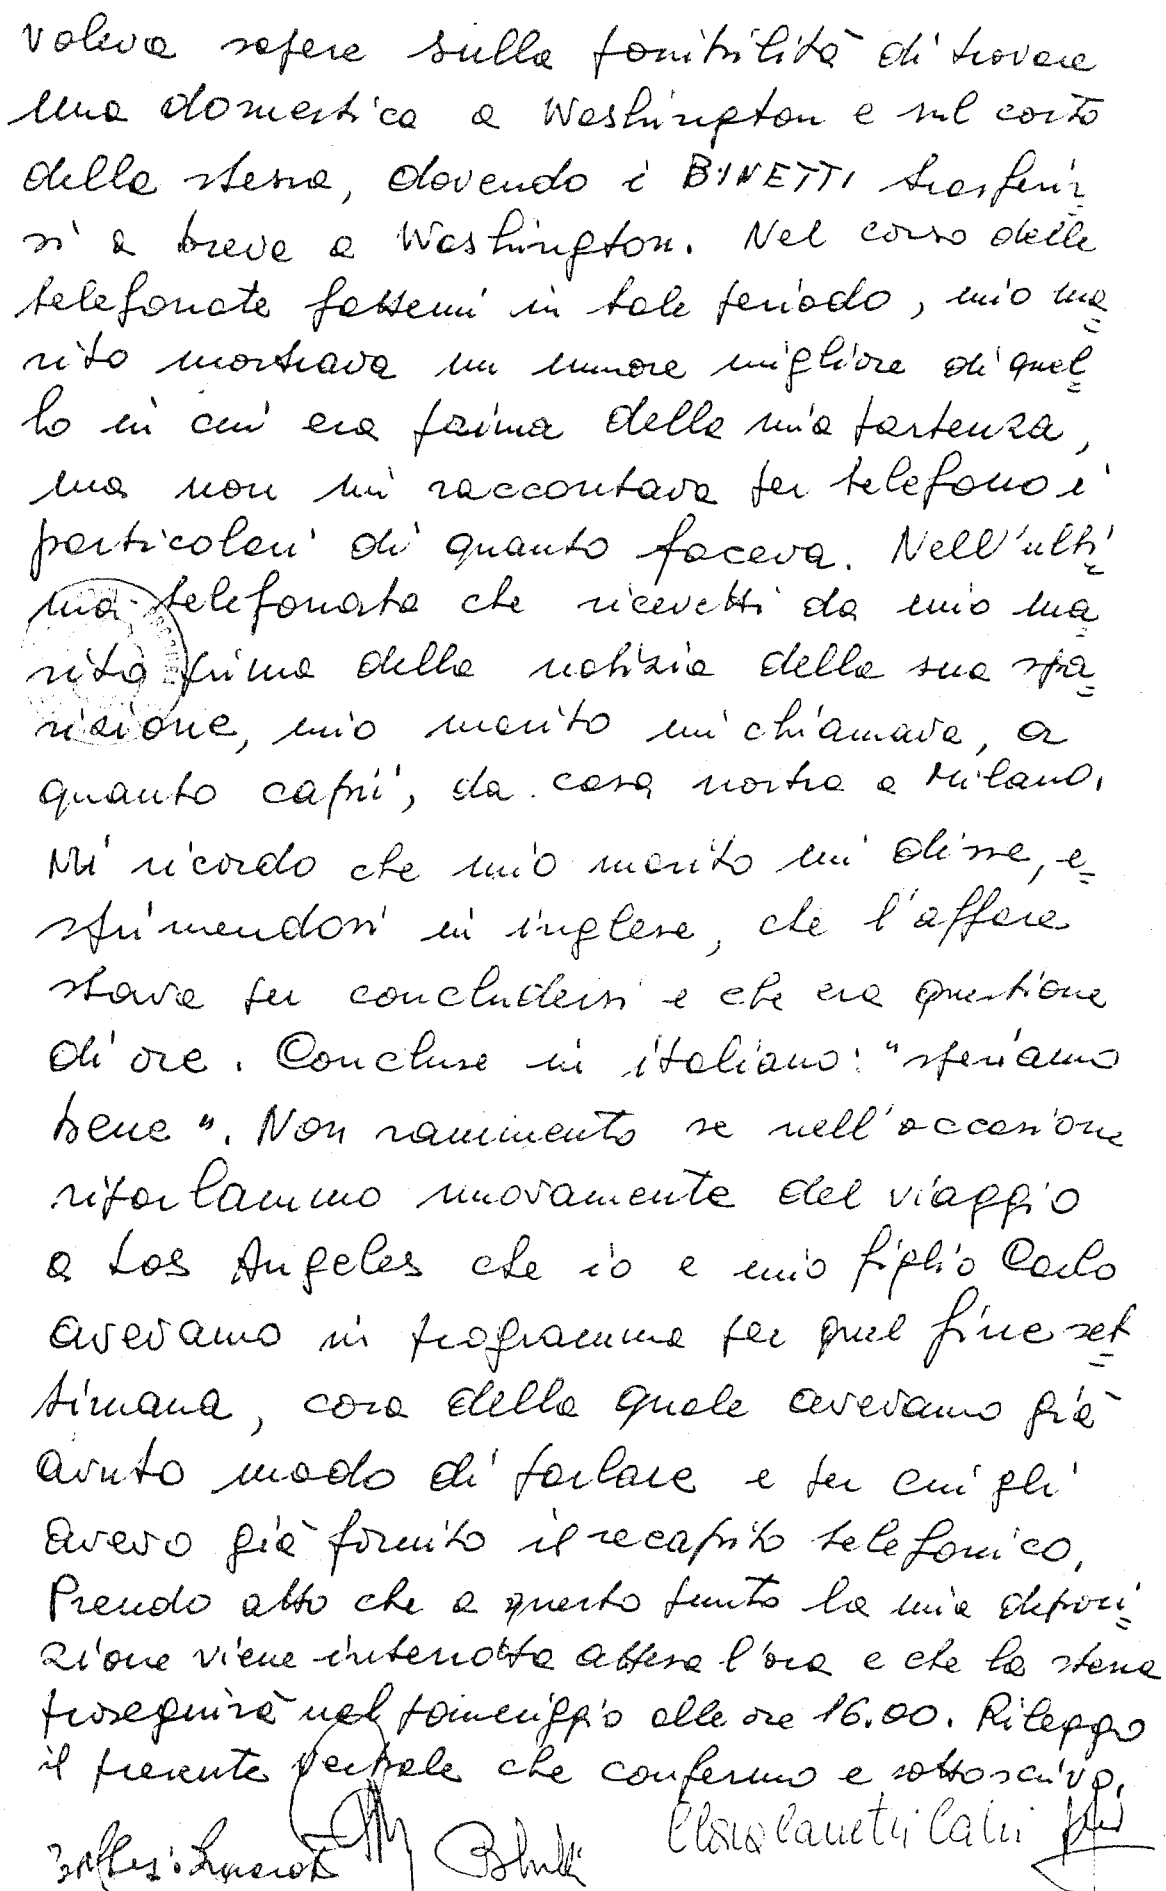 voleva sapere sulla possibilità di trovare
una domestica a Washington e sul costo
della stessa, dovendo i BINETTI trasferir
si a breve a Washington. Nel corso delle
telefonate fattemi in tale periodo, mio ma
rito mostrava un umore migliore di quel
lo in cui era prima della mia partenza,
ma non mi raccontava per telefono i
particolari di quanto faceva. Nell'ulti
ma telefonata che ricevetti da mio ma
rito prima della notizia della sua spa
rizione, mio marito mi chiamava, a
quanto capii, da casa nostra a Milano.
Mi ricordo che mio marito mi disse, e
sprimendosi in inglese, che l'affare
stava per concludersi e che era questione
di ore. Concluse in italiano: "speriamo
bene". Non rammento se nell'occasione
riparlammo nuovamente del viaggio
a Los Angeles che io e mio figlio Carlo
avevamo in programma per quel fine set
timana, cosa della quale avevamo già
avuto modo di parlare e per cui gli
avevo già fornito il recapito telefonico.
Prendo atto che a questo punto la mia deposi
zione viene interrotta attesa l'ora e che la stessa
proseguirà nel pomeriggio alle ore 16.00. Rileggo
il presente verbale che confermo e sottoscrivo.
Clara Canetti Calvi